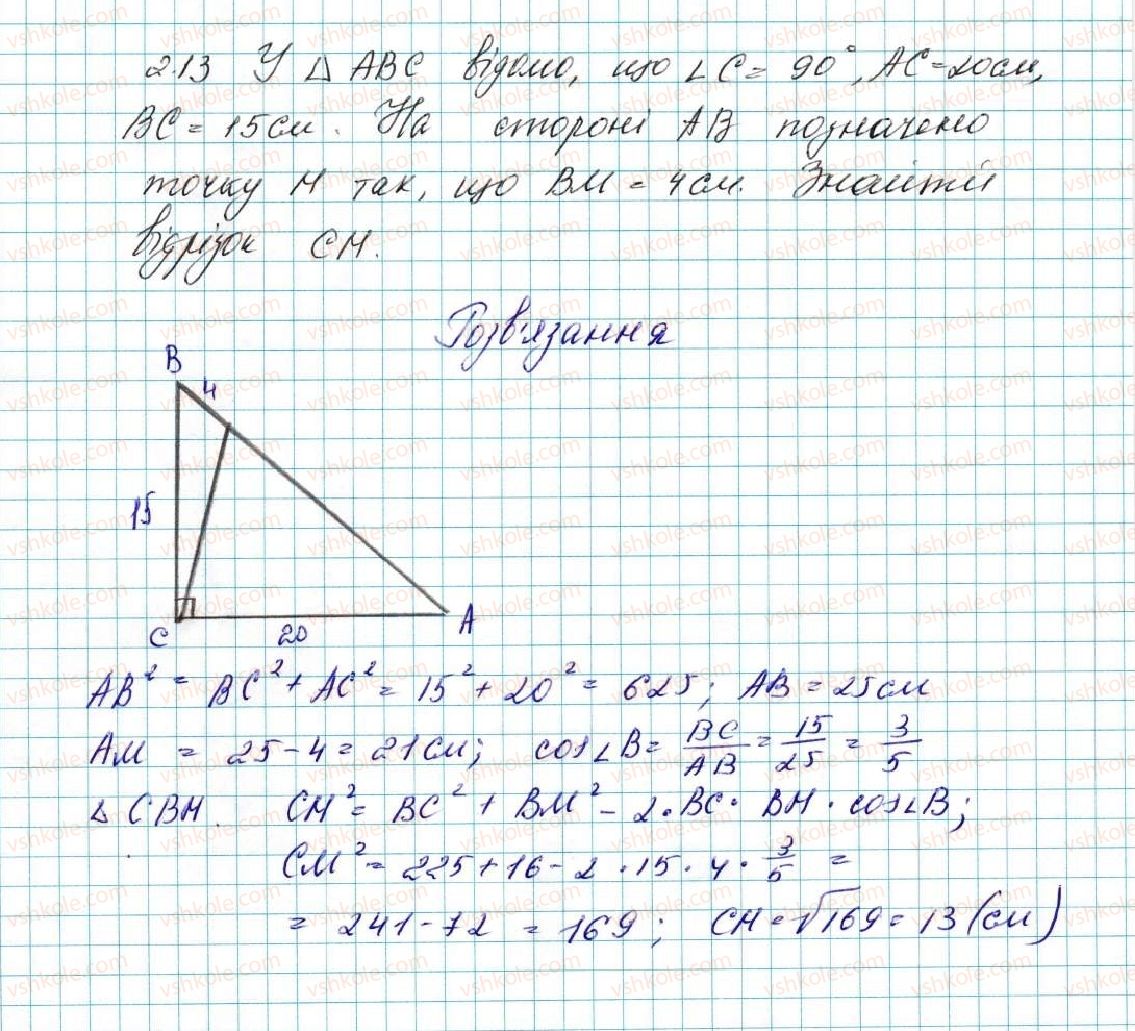 2.13 У △ ABC відомо, що ∠C = 90°, AC = 20см,
BC = 15см. На стороні AB позначено
точку M так, що BM = 4см. Знайти
відрізок CM.
Розв'язання
B
4
15
C
20
A
AB² = BC² + AC² = 15² + 20² = 625; AB = 25см
AM = 25 - 4 = 21см; cos∠B = BC/AB = 15/25 = 3/5
△ CBM. CM² = BC² + BM² - 2·BC·BM·cos∠B;
CM² = 225 + 16 - 2·15·4·3/5 =
= 241 - 72 = 169; CM = √169 = 13 (см)
vshkole.com